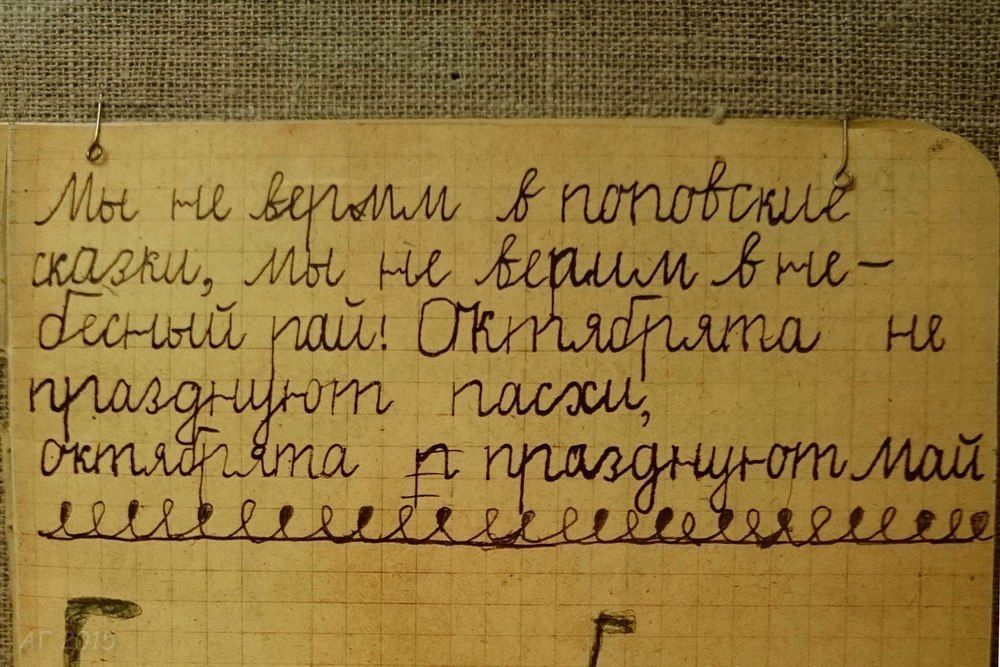 Мы не верим в поповские
сказки, мы не верим в не-
бесный рай! Октябрята не
празднуют пасхи,
октябрята п празднуют май
Г Г
АГ 2015